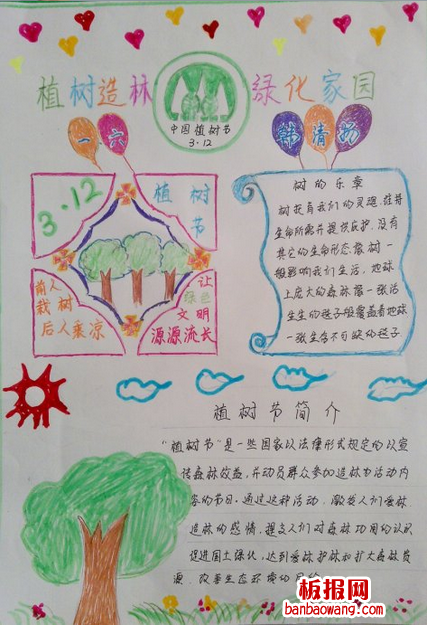 植树造林 绿化家园
中国植树节
3·12
一六
韩清扬
3·12
植树
节
前人
栽树
后人乘凉
让
绿色
文明
源源流长
树的乐章
树抚育我们的灵魂,维持
生命所需并提供庇护,没有
其它的生命形态像树一
般影响我们生活,地球
上庞大的森林像一张活
生生的毯子般覆盖着地球
一张生命不可缺的毯子
植树节简介
“植树节”是一些国家以法律形式规定的以宣
传森林效益,并动员群众参加造林为活动内
容的节日。通过这种活动,激发人们爱林
造林的感情,提高人们对森林功用的认识
促进国土绿化,达到爱林护林和扩大森林资
源、改善生态环境的目的
板报网
banbaowang.com